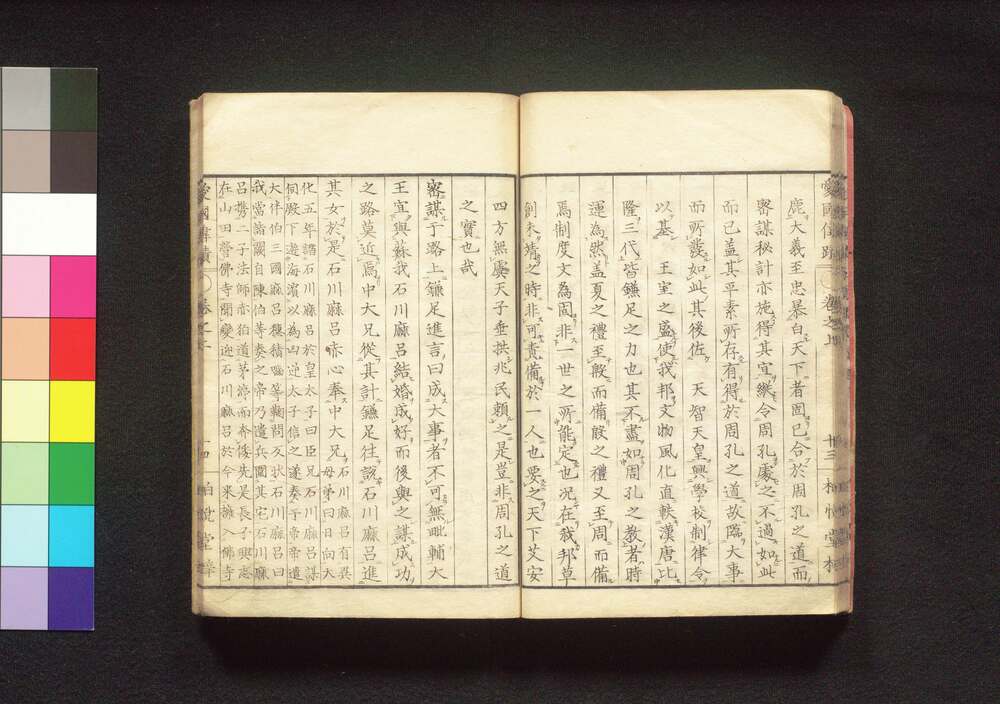 鹿大義至忠暴白天下者固已合於周孔之道而
密謀秘計亦施得其宜縱令周孔處之不過如此
而已蓋其平素所存有得於周孔之道故臨大事
而所發如此其後佐　天智天皇興學校制律令
以基　王室之盛使我邦文物風化直軼漢唐比
隆三代皆鎌足之力也其不盡如周孔之教者時
運為然蓋夏之禮至殷而備殷之禮又至周而備
焉制度文為固非一世之所能定也況在我邦草
創未靖之時非可責備於一人也要之天下艾安
四方無虞天子垂拱兆民賴之是豈非周孔之道
之實也哉
密謀于路上鎌足進言曰成大事者不可無毗輔大
王宜與蘇我石川麻呂結婚成好而後與之謀成功
之路莫近焉中大兄從其計鎌足往說石川麻呂進
其女於是石川麻呂赤心奉中大兄石川麻呂有異
母弟曰日向大
化五年譖石川麻呂於皇太子曰臣兄石川麻呂謀
伺殿下遊海濱以為凶逆太子信之遂奏于帝帝遣
大伴伯三國麻呂穗積嚙等鞠問反狀石川麻呂曰
我當詣闕自陳伯等奏之帝乃遣兵圍其宅石川麻
呂携二子法師赤狛道茅渟而奔倭先是長子興志
在山田營佛寺聞變迎石川麻呂於今來擁入佛寺